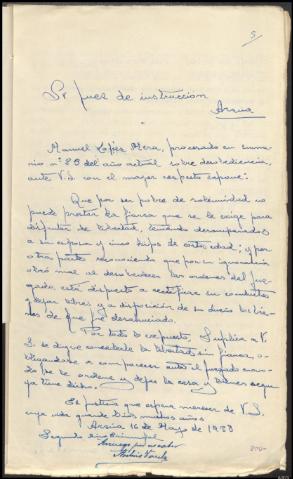 5
Sr Juez de instruccion
Arzua
Manuel López Mera, procesado en suma-
rio nº 86 del año actual sobre desobediencia,
ante V.S. con el mayor respeto expone:
Que por ser pobre de solemnidad no
puede prestar la fianza que se le exige para
disfrutar de libertad, teniendo desamparados
a su esposa y cinco hijos de corta edad; y por
otra parte reconociendo que por su ignorancia
obró mal al desobedecer las ordenes del Juz-
gado, está dispuesto a rectificar su conducta
y dejar libres y a disposición de su dueño los bie-
nes de que fué denunciado.
Por todo lo expuesto, Suplica a V.
S. se digne concederle la libertad sin fianza, o-
bligandose a comparecer ante el juzgado cuan-
do se le ordene y dejar la casa y bienes segun
ya tiene dicho.
Es justicia que espera merecer de V.S.
cuya vida guarde Dios muchos años
Arzua 16 de Mayo de 1938
Segundo año triunfal
Arruego por no saber
Varela